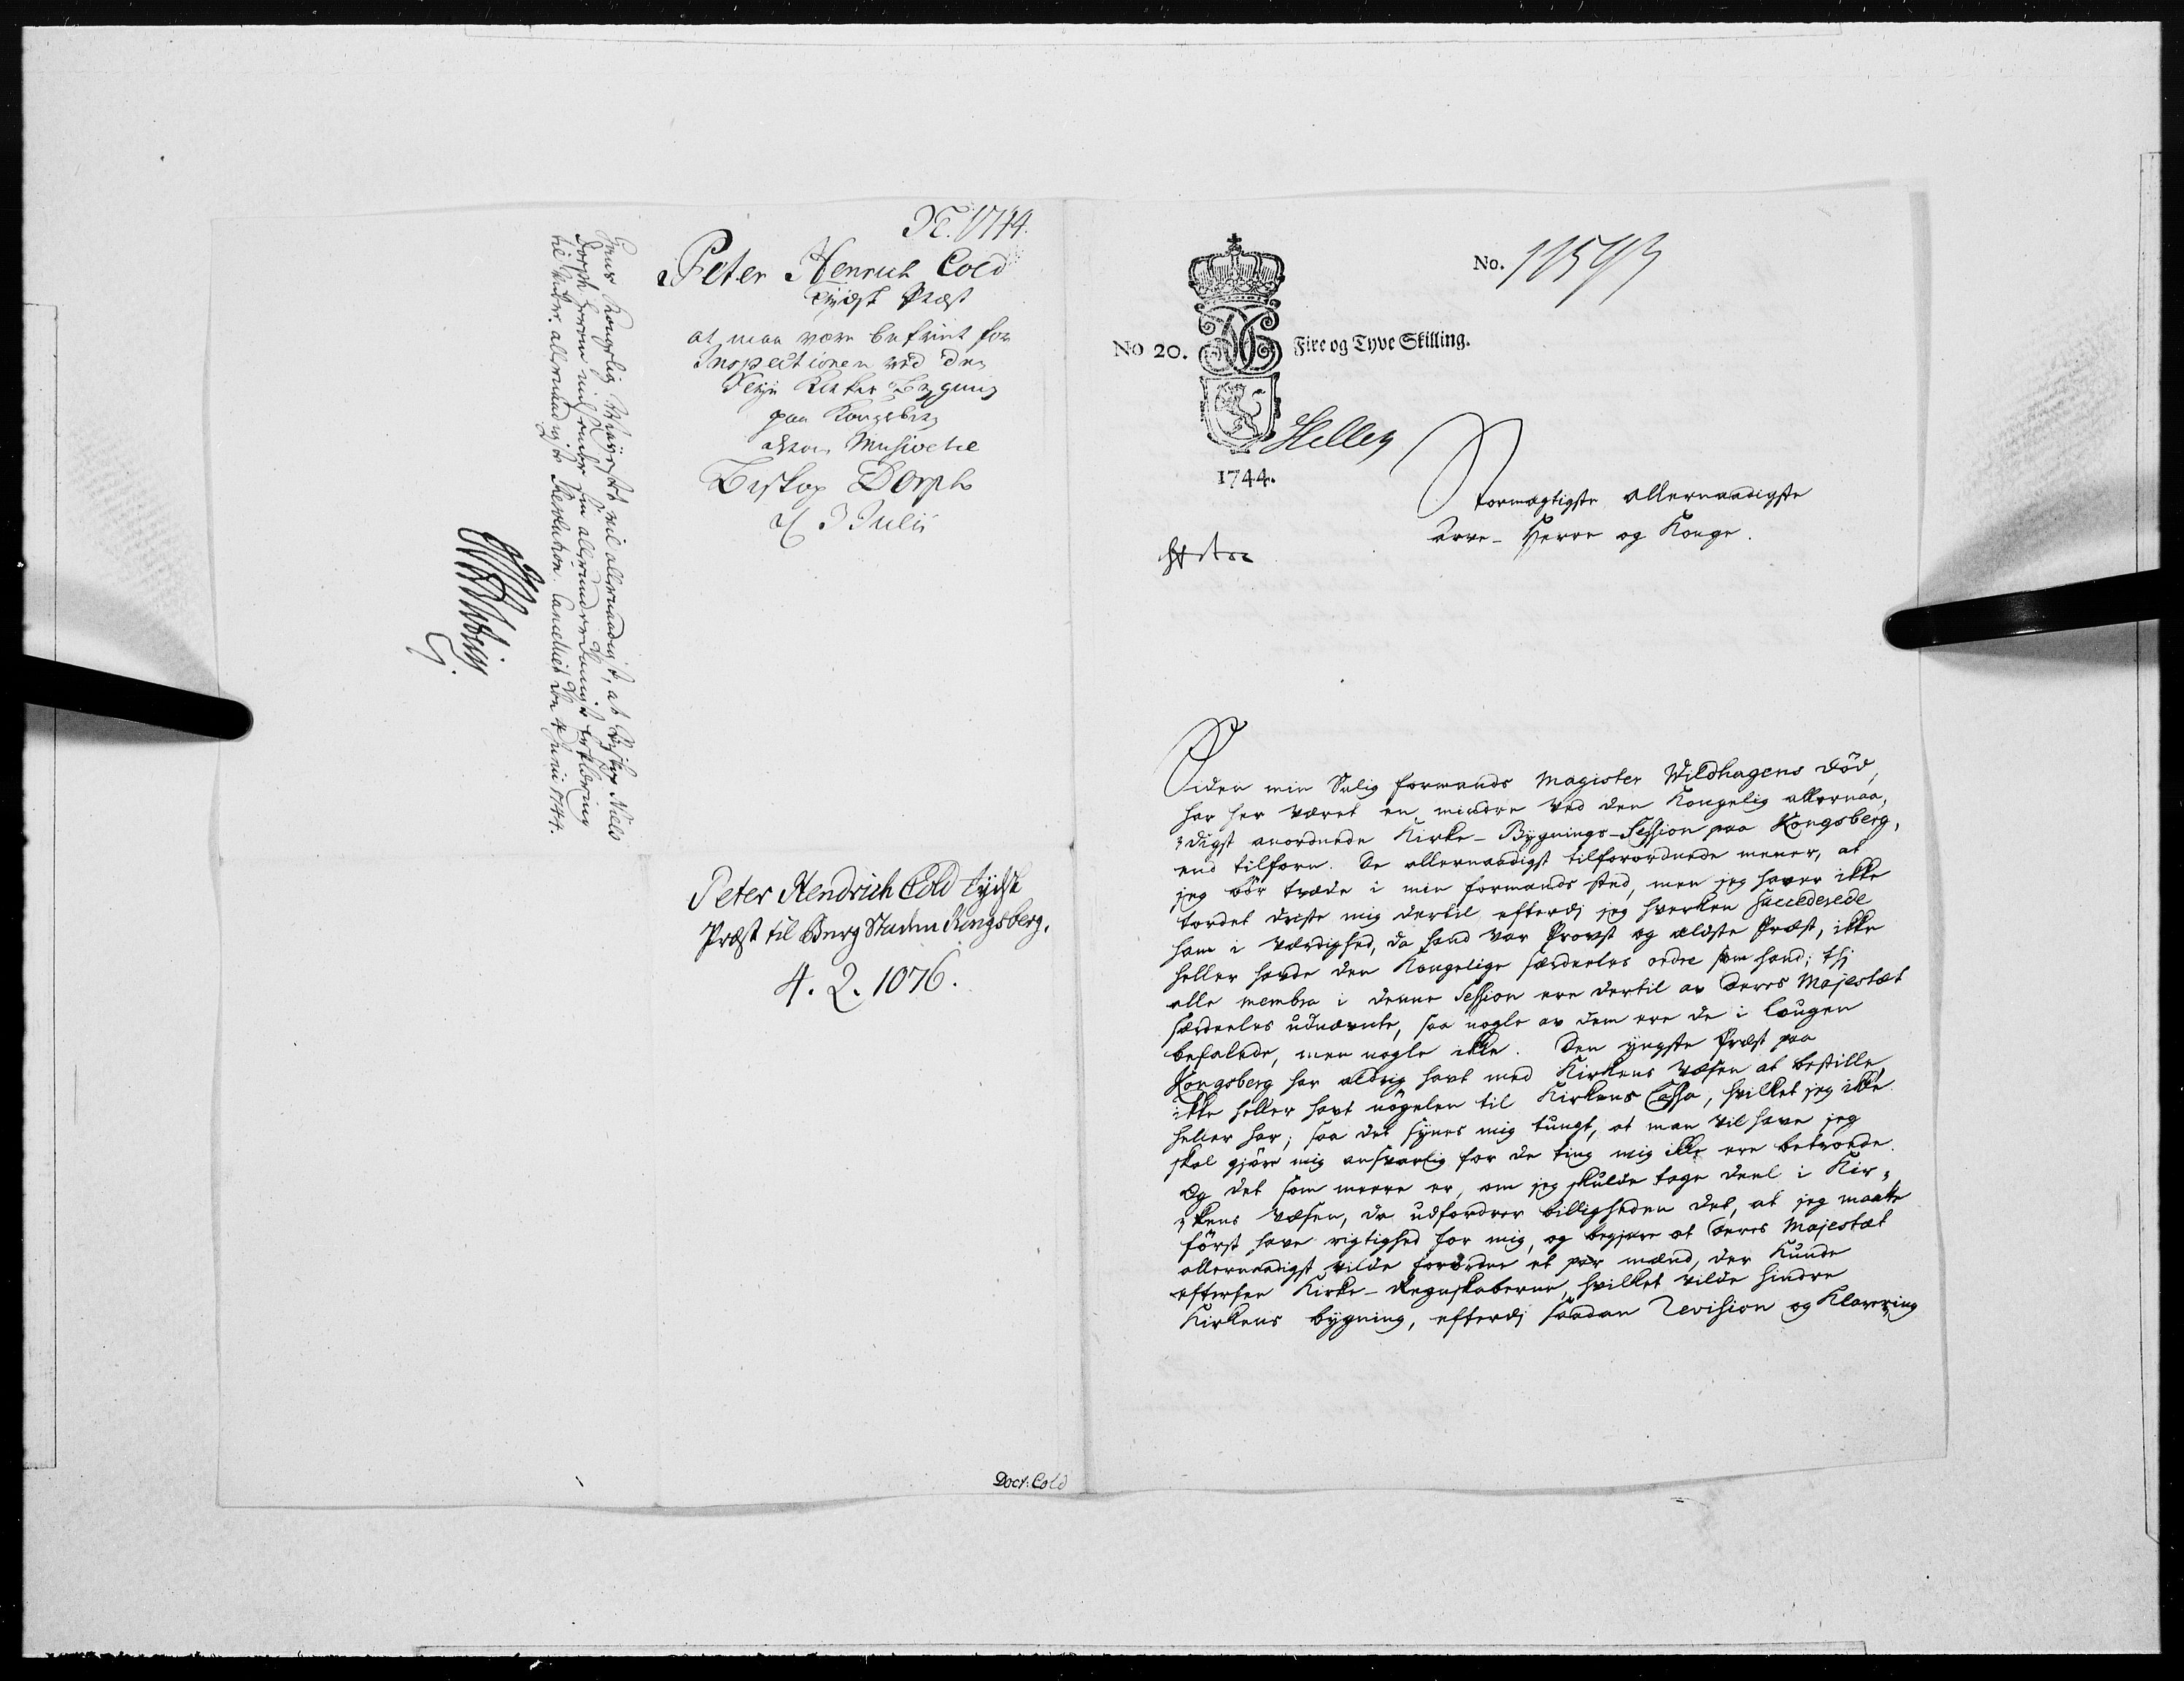 1744.
Peter Henrich Cold
Tydsk Præst
at maa være befriet for
Inspectionen ved den
Nye Kirkes Bygning
paa Kongsberg
Biskop Dorph
d 3 Julii
Hans Kongelig Mayestet vil allernaadigst, at Biskop Niels
Dorph herom indsender sin allerunderdanigste Erklæring
til videre allernaadigste Resolution. Cancelliet den 4 Juni 1744.
Peter Hendrich Cold tydsk
Præst til Berg Staden Kongsberg.
4. 2. 1076.
Doct: Cold
No. 11593
No 20. Fire og Tyve Skilling.
1744.
Stormægtigste allernaadigste
Arve-Herre og Konge.
Siden min Salig formands Magister Wildhagens död,
har her været en mindre ved den Kongelig allernaa-
digst anordnede Kirke-Bygnings-Session paa Kongsberg,
end tilforn. De allernaadigst tilforordnede mener, at
jeg bör træde i min formands sted, men jeg haver ikke
tordet driste mig dertil efterdi jeg hverken succederede
ham i værdighed, da hand var Provst og ældste Præst, ikke
heller havde den Kongelige særdeeles ordre som hand; thi
alle membra i denne Session ere dertil av Deres Majestæt
særdeeles udnævnte, saa nogle av dem ere de i Lougen
befalede, men nogle ikke. Den yngste Præst paa
Kongsberg har aldrig havt med Kirkens væsen at bestille,
ikke heller havt nögelen til Kirkens Cassa, hvilket jeg ikke
heller har; saa det synes mig tungt, at man vil have jeg
skal gjöre mig ansvarlig for de ting mig ikke ere betroede.
Og det som meere er, om jeg skulde tage deel i Kir-
kens væsen, da udfordrer billigheden det, at jeg maatte
först have rigtighed for mig, og begjære at Deres Majestæt
allernaadigst vilde forordne et par mænd, der kunde
eftersee Kirke-Regnskaberne, hvilket vilde hindre
Kirkens bygning, efterdi saadan Revision og Klarering